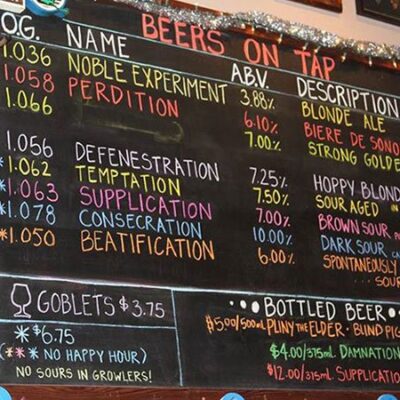 BEERS ON TAP
OG. NAME ABV. DESCRIPTION
1.036 NOBLE EXPERIMENT 3.88% BLONDE ALE
1.058 PERDITION 6.10% BIERE DE SONO
1.066 7.00% STRONG GOLDE
1.056 DEFENESTRATION 7.25% HOPPY BLOND
*1.062 TEMPTATION 7.50% SOUR AGED IN
*1.063 SUPPLICATION 7.00% BROWN SOUR
*1.078 CONSECRATION 10.00% DARK SOUR CA
*1.050 BEATIFICATION 6.00% SPONTANEOUSLY
... SOUR
GOBLETS $3.75
*$6.75
(*** NO HAPPY HOUR)
NO SOURS IN GROWLERS!
BOTTLED BEER
$5.00/500ML PLINY THE ELDER · BLIND PIG
$4.00/375ML DAMNATION
$12.00/375ML SUPPLICATIO